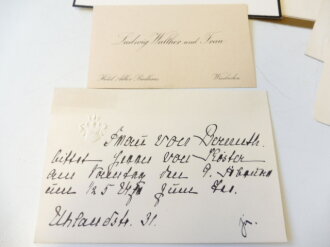 Ludwig Walther und Frau
Hotel Adler Badhaus Wiesbaden
Frau von
bittet Herrn von
am Sonntag den 9. Februar
um 1/2 5 Uhr zum Tee.
Uhlandstr. 21.